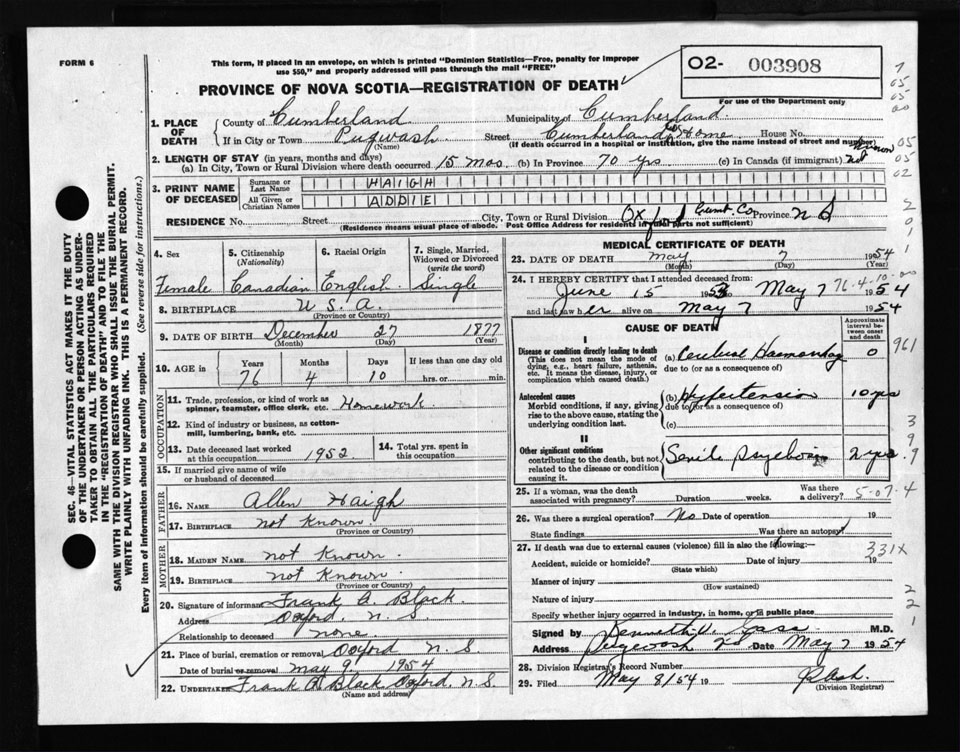 FORM 6
This form, if placed in an envelope, on which is printed "Dominion Statistics—Free, penalty for improper
use $50," and properly addressed will pass through the mail "FREE"
O2- 003908
PROVINCE OF NOVA SCOTIA—REGISTRATION OF DEATH
For use of the Department only
1. PLACE OF DEATH
County of Cumberland Municipality of Cumberland
If in City or Town Pugwash Street Cumberland Home House No.
(Name) (If death occurred in a hospital or institution, give the name instead of street and number)
2. LENGTH OF STAY (in years, months and days)
(a) In City, Town or Rural Division where death occurred 15 mos. (b) In Province 70 yrs (c) In Canada (if immigrant) not known
3. PRINT NAME OF DECEASED
Surname or Last Name HAIGH
All Given or Christian Names ADDIE
RESIDENCE No. Street City, Town or Rural Division Oxford Cumb. Co. Province N S
(Residence means usual place of abode. Post Office Address for residents in rural parts not sufficient)
4. Sex Female
5. Citizenship (Nationality) Canadian
6. Racial Origin English
7. Single, Married, Widowed or Divorced (write the word) Single
8. BIRTHPLACE U. S. A.
(Province or Country)
9. DATE OF BIRTH December 27 1877
(Month) (Day) (Year)
10. AGE in Years 76 Months 4 Days 10 If less than one day old
hrs. or min.
OCCUPATION
11. Trade, profession, or kind of work as
spinner, teamster, office clerk, etc. Homework
12. Kind of industry or business, as cotton-
mill, lumbering, bank, etc.
13. Date deceased last worked
at this occupation 1952
14. Total yrs. spent in this occupation
15. If married give name of wife
or husband of deceased
FATHER
16. NAME Allen Haigh
17. BIRTHPLACE not Known.
(Province or Country)
MOTHER
18. MAIDEN NAME not Known.
19. BIRTHPLACE not Known.
(Province or Country)
20. Signature of informant Frank A. Black.
Address Oxford. N. S.
Relationship to deceased none
21. Place of burial, cremation or removal Oxford N. S.
Date of burial or removal May 9. 1954
22. UNDERTAKER Frank A. Black Oxford. N.S.
(Name and address)
MEDICAL CERTIFICATE OF DEATH
23. DATE OF DEATH May 7 1954
(Month) (Day) (Year)
24. I HEREBY CERTIFY that I attended deceased from:
76-4-10-00
June 15 1953 May 7 1954
and last saw her alive on May 7 1954
CAUSE OF DEATH
Approximate interval between onset and death
I
Disease or condition directly leading to death
(This does not mean the mode of dying, e.g., heart failure, asthenia, etc. It means the disease, injury, or complication which caused death.)
(a) Cerebral Haemorrhage 0
due to (or as a consequence of)
Antecedent causes
Morbid conditions, if any, giving rise to the above cause, stating the underlying condition last.
(b) Hypertension 10 yrs
due to (or as a consequence of)
(c)
II
Other significant conditions
contributing to the death, but not related to the disease or condition causing it.
Senile Psychosis 2 yrs.
25. If a woman, was the death
associated with pregnancy? Duration weeks. Was there a delivery? 5-07-4
26. Was there a surgical operation? No Date of operation 19
State findings Was there an autopsy?
27. If death was due to external causes (violence) fill in also the following:—
331X
Accident, suicide or homicide? Date of injury 19
(State which)
Manner of injury
(How sustained)
Nature of injury
Specify whether injury occurred in industry, in home, or in public place
Signed by Kenneth V. Gass M.D.
Address Pugwash NS Date May 7 1954
28. Division Registrar's Record Number
29. Filed May 8/54 19
(Division Registrar)
SEC. 46—VITAL STATISTICS ACT MAKES IT THE DUTY
OF THE UNDERTAKER OR PERSON ACTING AS UNDER-
TAKER TO OBTAIN ALL THE PARTICULARS REQUIRED
IN THE "REGISTRATION OF DEATH" AND TO FILE THE
SAME WITH THE DIVISION REGISTRAR WHO SHALL ISSUE THE BURIAL PERMIT.
WRITE PLAINLY WITH UNFADING INK. THIS IS A PERMANENT RECORD.
Every item of information should be carefully supplied. (See reverse side for instructions.)
7
05
05
00
05
05
02
2
0
1
1
961
3
9
9
2
2
1